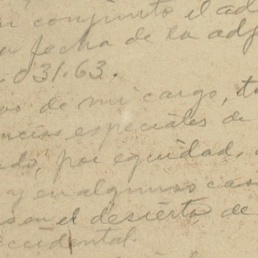 conjunto el ad
fecha de la adj
031.63.
os de mi cargo, t
ncias especiales de
do, por equidad,
y en algunos cas
s en el desierto de
ccidental.